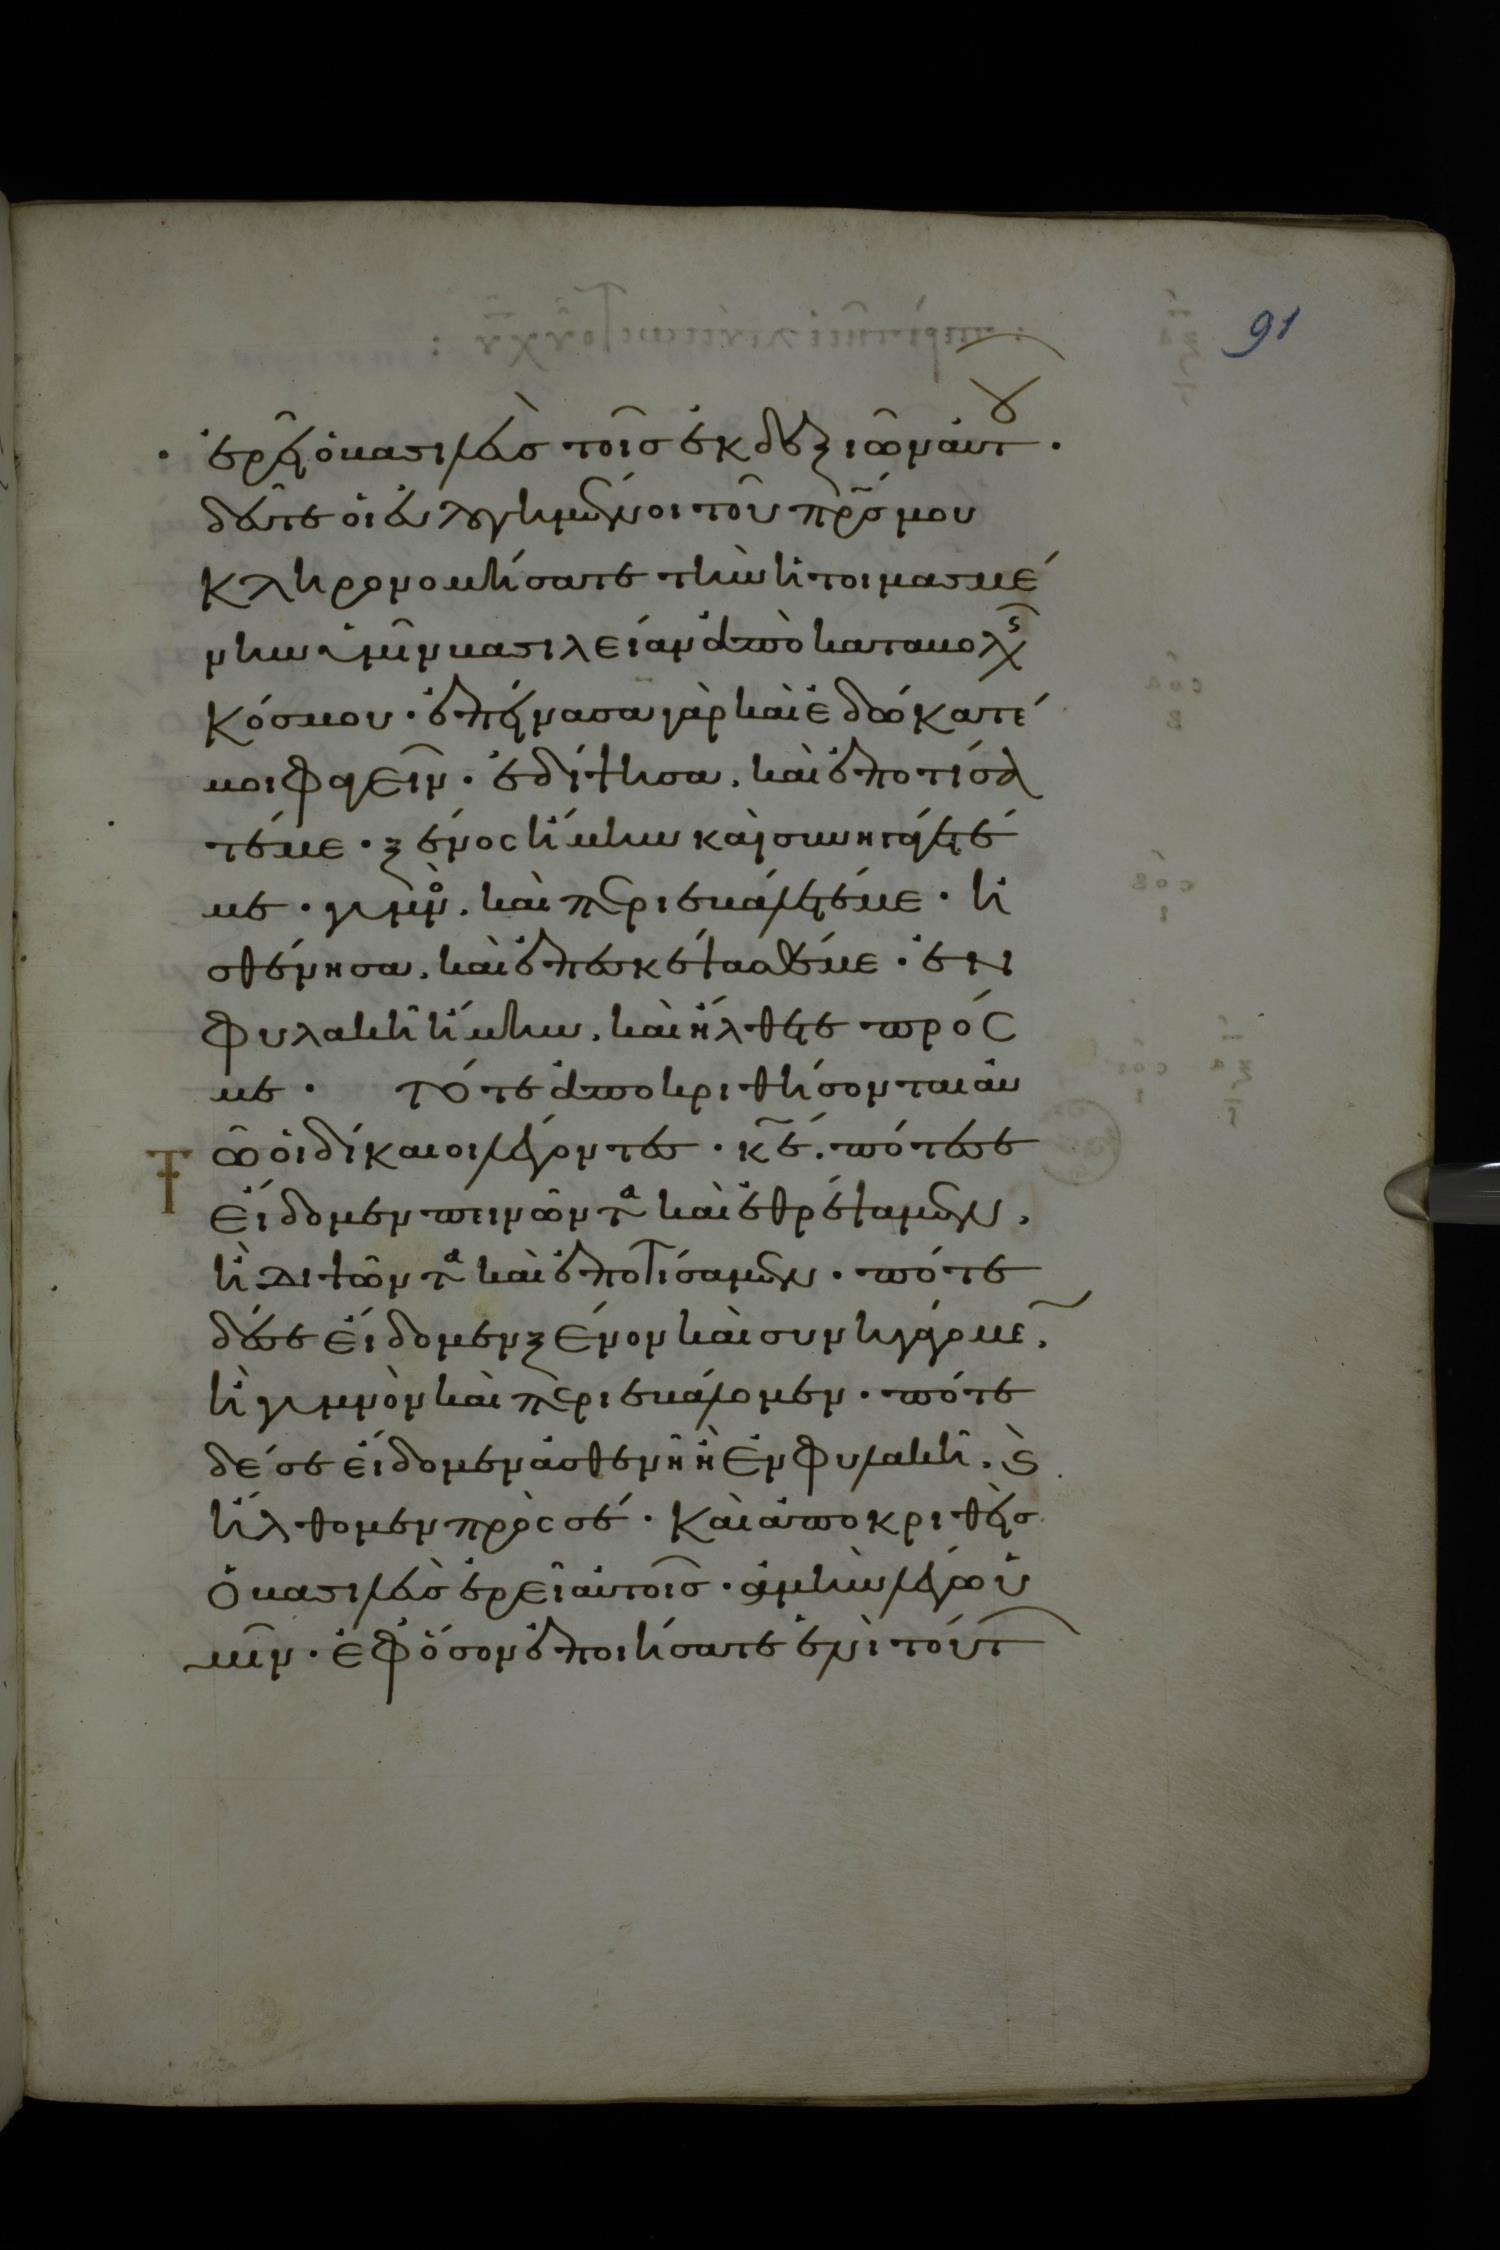 91
· ἐρεῖ ὁ βασιλεὺς τοῖς ἐκ δεξιῶν αὐτοῦ ·
δεῦτε οἱ εὐλογημένοι τοῦ πρ̅ς μου
κληρονομήσατε τὴν ἡτοιμασμέ
νην ὑμῖν βασιλείαν ἀπὸ καταβολῆς
κόσμου · ἐπείνασα γὰρ καὶ ἐδώκατέ
μοι φαγεῖν · ἐδίψησα, καὶ ἐποτίσα
τέ με · ξένος ἤμην καὶ συνηγάγετέ
με · γυμνὸς, καὶ περιεβάλετέ με · ἠ
σθένησα, καὶ ἐπεσκέψασθέ με · ἐν
φυλακῆ ἤμην, καὶ ἤλθετε πρός
με · τότε ἀποκριθήσονται αὐ
τῶ οἱ δίκαιοι λέγοντες · κ̅ε, πότε σε
εἴδομεν πεινῶντα καὶ ἐθρέψαμεν,
ἢ διψῶντα καὶ ἐποτίσαμεν · πότε
δέ σε εἴδομεν ξένον καὶ συνηγάγομεν,
ἢ γυμνὸν καὶ περιεβάλομεν · πότε
δέ σε εἴδομεν ἀσθενῆ ἢ ἐν φυλακῆ, ϗ
ἤλθομεν πρὸς σέ · Καὶ ἀποκριθεὶς
ὁ βασιλεὺς ἐρεῖ αὐτοῖς · ἀμὴν λέγω ὑ
μῖν · ἐφ ὅσον ἐποιήσατε ἑνὶ τούτων